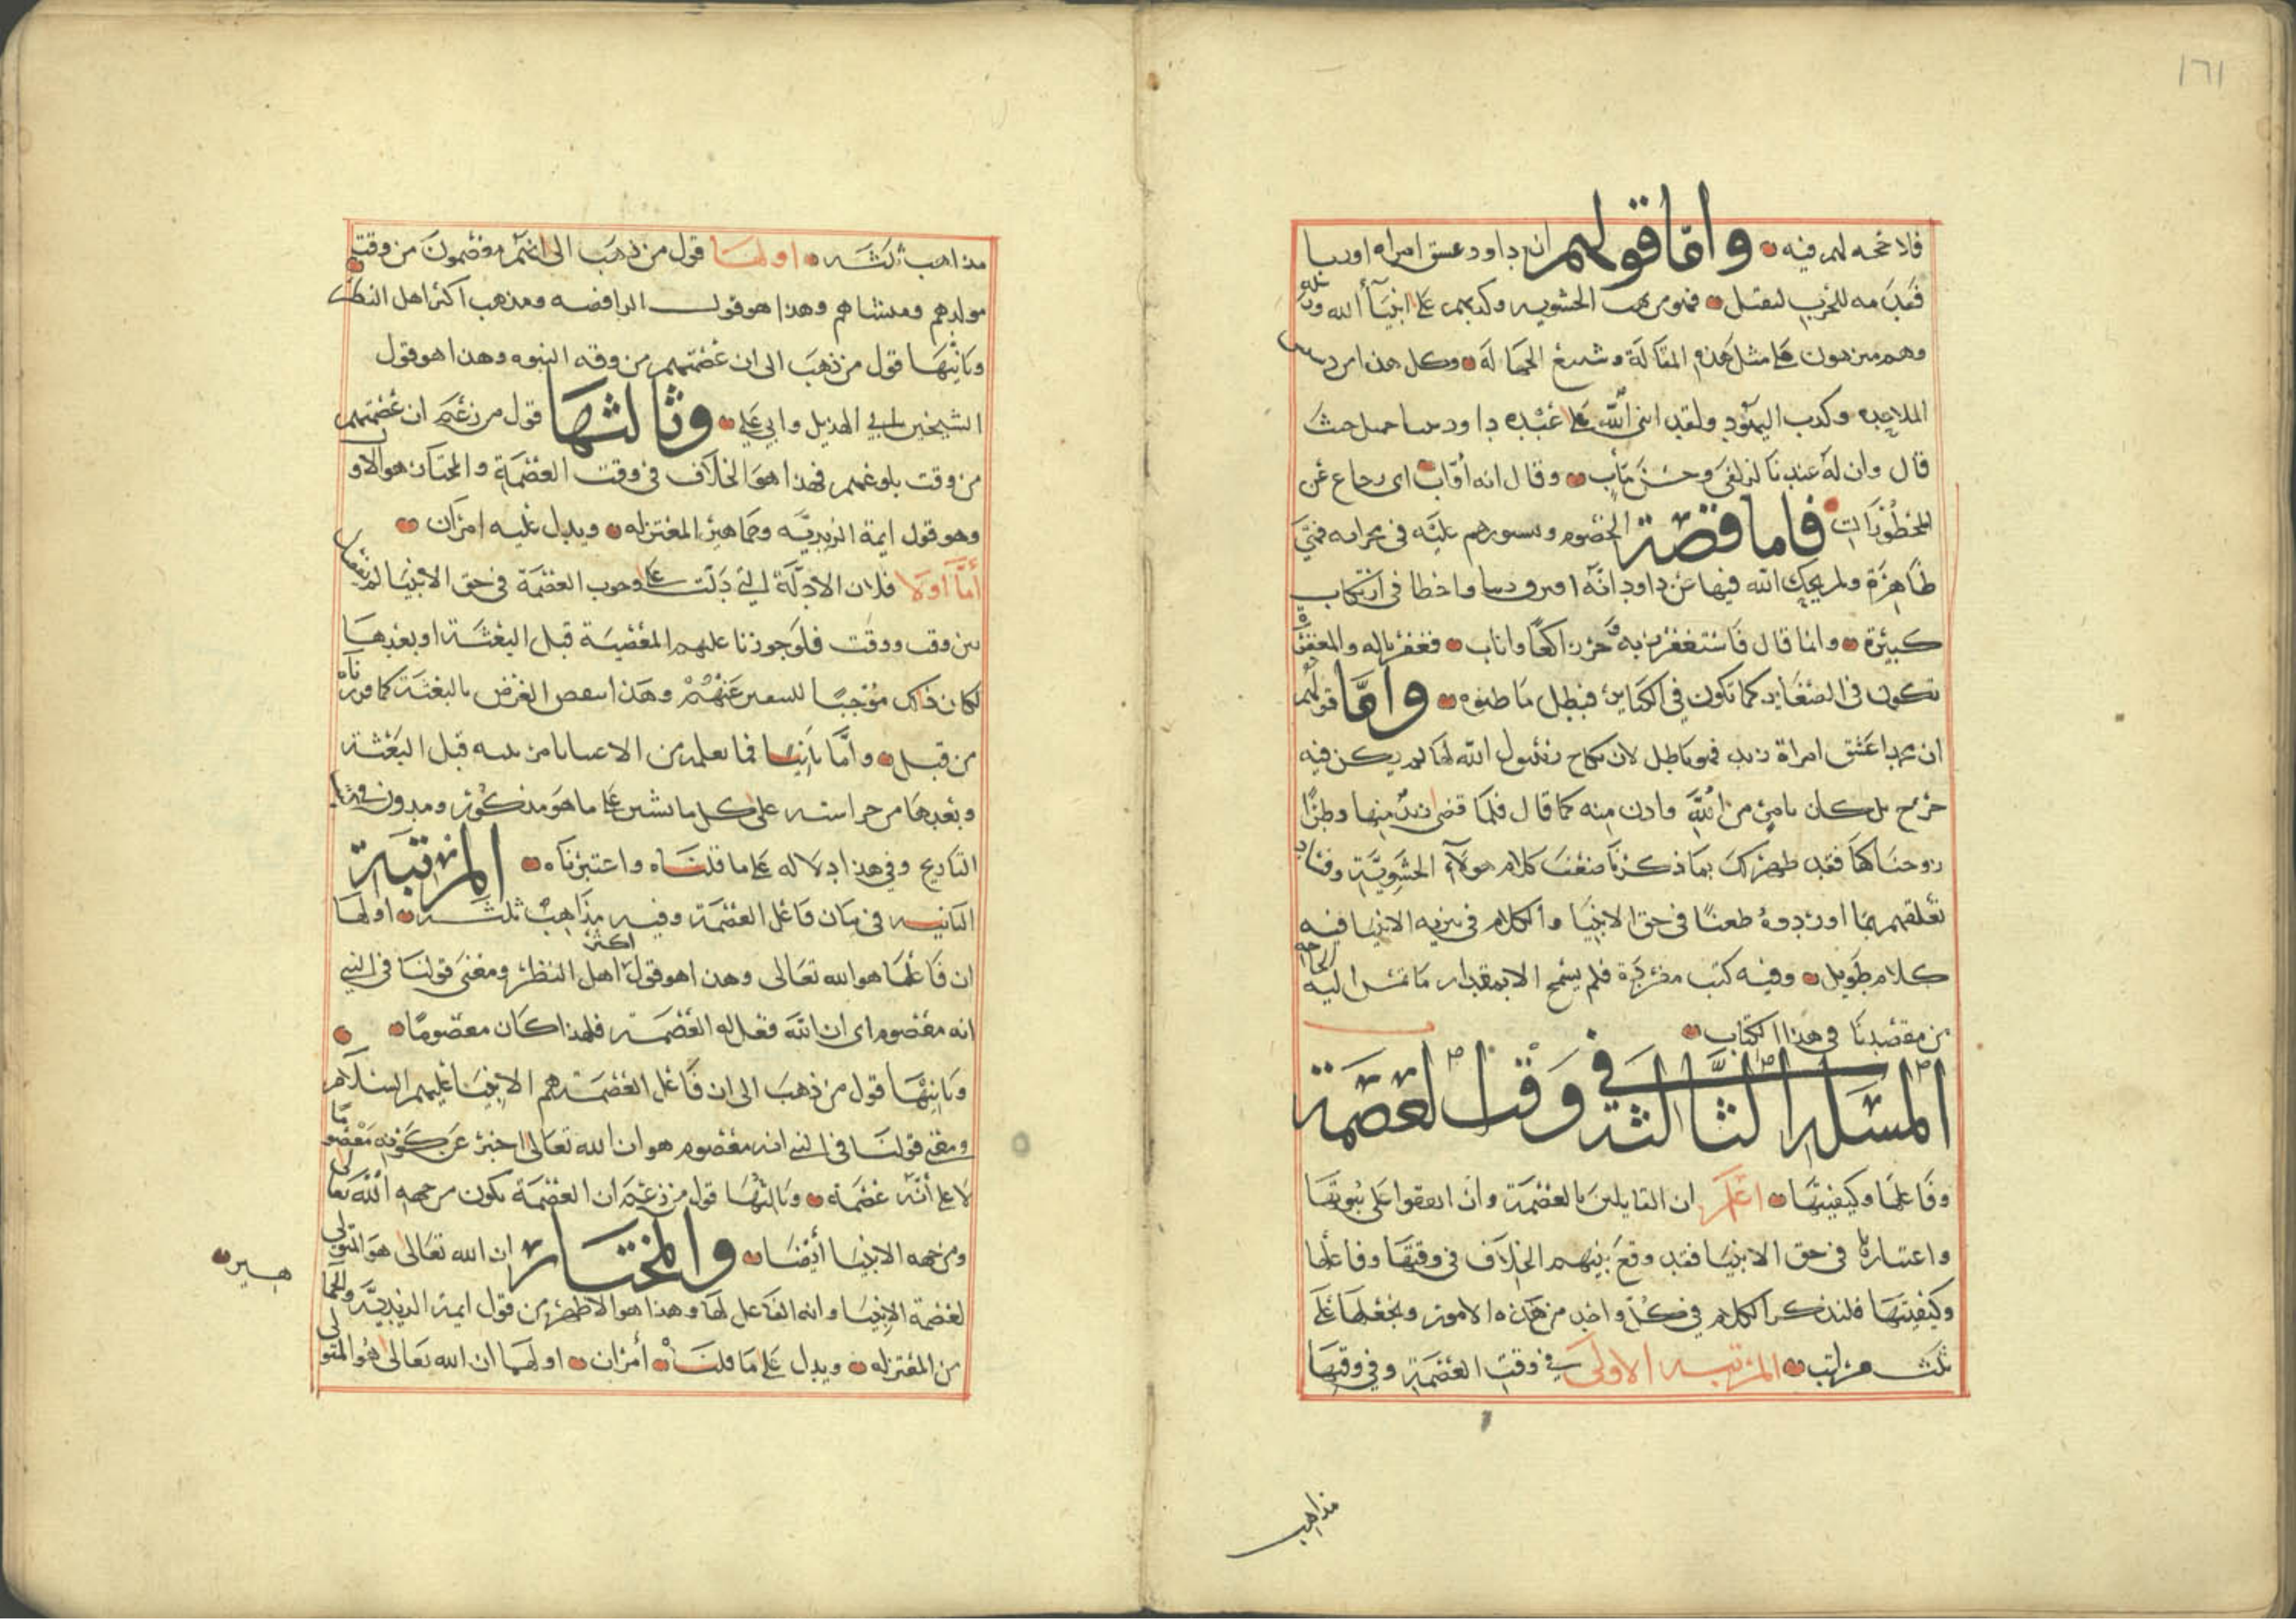 ١٦١
فلا حجه لهم فيه • واما قولهم ان داود عشق امراه اوريا
فقدمه للحرب ليقتل • فهو من الحشويه وكذبهم على انبيآ الله
وهم منزهون عن مثل هذه المقالة وشنيع الجهالة • وكل هذا من دسيس
الملاحده وكذب اليهود ولقد اثنى الله على عبده داود حيث
قال وان له عندنا لزلفى وحسن مآب • وقال انه اواب اى رجاع عن
المحظورات • فاما قصة الخصوم وتسورهم عليه فى محرابه فهى
ظاهرة ولم يحك الله فيها عن داود انه اخطا فى ارتكاب
كبيرة • وانما قال فاستغفر ربه وخر راكعا واناب • فغفرنا له والمغفرة
تكون فى الصغاير كما تكون فى الكباير فبطل ما ظنوه • واما قولهم
ان محمدا عشق امراة زيد فهو باطل لان نكاح رسول الله لها لم يكن فيه
حرج بل كان بامر من الله واذن منه كما قال فلما قضى زيد منها وطرا
زوجناكها فقد ظهر لك بما ذكرنا ضعف كلام هولآء الحشوية وفساد
تعلقهم بما اوردوه طعنا فى حق الانبيا والكلام فى تنزيه الانبيا فيه
كلام طويل • وفيه كتب مفردة فلم يسمح الا بمقدار ما تمس اليه الحاجه
من مقصدنا فى هذا الكتاب •
المسله الثالثه فى وقت العصمة
وفاعلها وكيفيتها • اعلم ان القايلين بالعصمة وان اتفقوا على ثبوتها
واعتبارها فى حق الانبيا فقد وقع بينهم الخلاف فى وقتها وفاعلها
وكيفيتها فلنذكر الكلام فى كل واحد من هذه الامور ونجعلها على
ثلث مراتب • المرتبه الاولى فى وقت العصمة وفى وقتها
مذاهب
مذاهب ثلثه • اولها قول من ذهب الى انهم معصمون من وقت
مولدهم ومنشاهم وهذا هو قول الرافضه ومذهب اكثر اهل النظر
وثانيها قول من ذهب الى ان عصمتهم من وقه النبوه وهذا هو قول
الشيخين ابى الهذيل وابى على • وثالثها قول من زعم ان عصمتهم
من وقت بلوغهم فهذا هو الخلاف فى وقت العصمة والمختار هو الاول
وهو قول ايمة الزيديه وجماهير المعتزله • ويدل عليه امران •
اما اولا فلان الادلة التى دلت على وجوب العصمة فى حق الانبيا لم تفصل
بين وقت ووقت فلو جوزنا عليهم المعصية قبل البعثة او بعدها
لكان ذلك موجبا للتنفير عنهم وهذا ينقض الغرض بالبعثة كما قررناه
من قبل • واما ثانيا فما نعلمه من الاعتنا من الله قبل البعثة
وبعدها من حراسته على كل ما يشين على ما هو مذكور ومدون فى
التاريخ وفى هذا دلاله على ما قلناه واعتبرناه • المرتبة
الثانيه فى بيان فاعل العصمة وفيه مذاهب ثلثه • اولها
ان فاعلها هو الله تعالى وهذا هو قول اكثر اهل النظر ومعنى قولنا فى النبى
انه معصوم اى ان الله فعل له العصمة فلهذا كان معصوما •
وثانيها قول من ذهب الى ان فاعل العصمة هم الانبيا عليهم السلام
ومعنى قولنا فى النبى انه معصوم هو ان الله تعالى اخبر عن كونه معصوما
لا على انه عصمة • وثالثها قول من زعم ان العصمة تكون من جهه الله تعالى
ومن جهه الانبيا أيضا • والمختار ان الله تعالى هو المتولى
لعصمة الانبيا وانه الفاعل لها وهذا هو الاظهر من قول ايمة الزيدية والجما
هير •
من المعتزله • ويدل على ما قلناه • أمران • اولهما ان الله تعالى هو المتولى